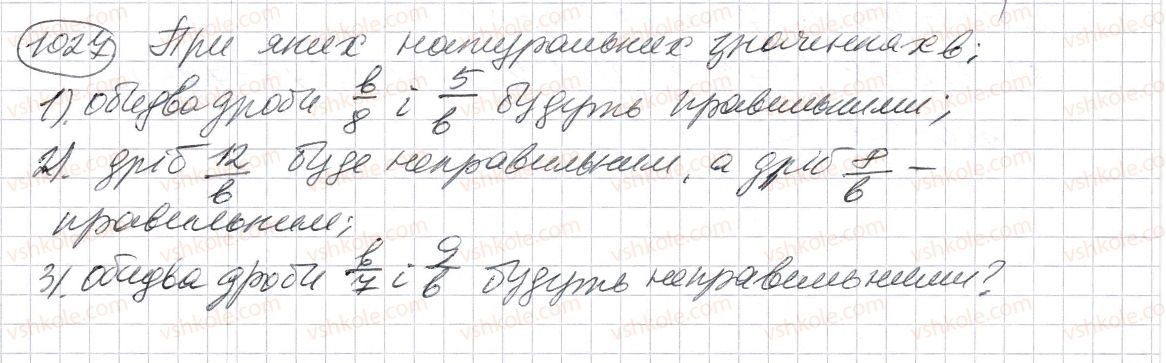 1027 При яких натуральних значеннях в:
1). обидва дроби в/8 і 5/в будуть правильними;
2). дріб 12/в буде неправильним, а дріб 8/в –
правильним;
3). обидва дроби в/7 і 9/в будуть неправильними?